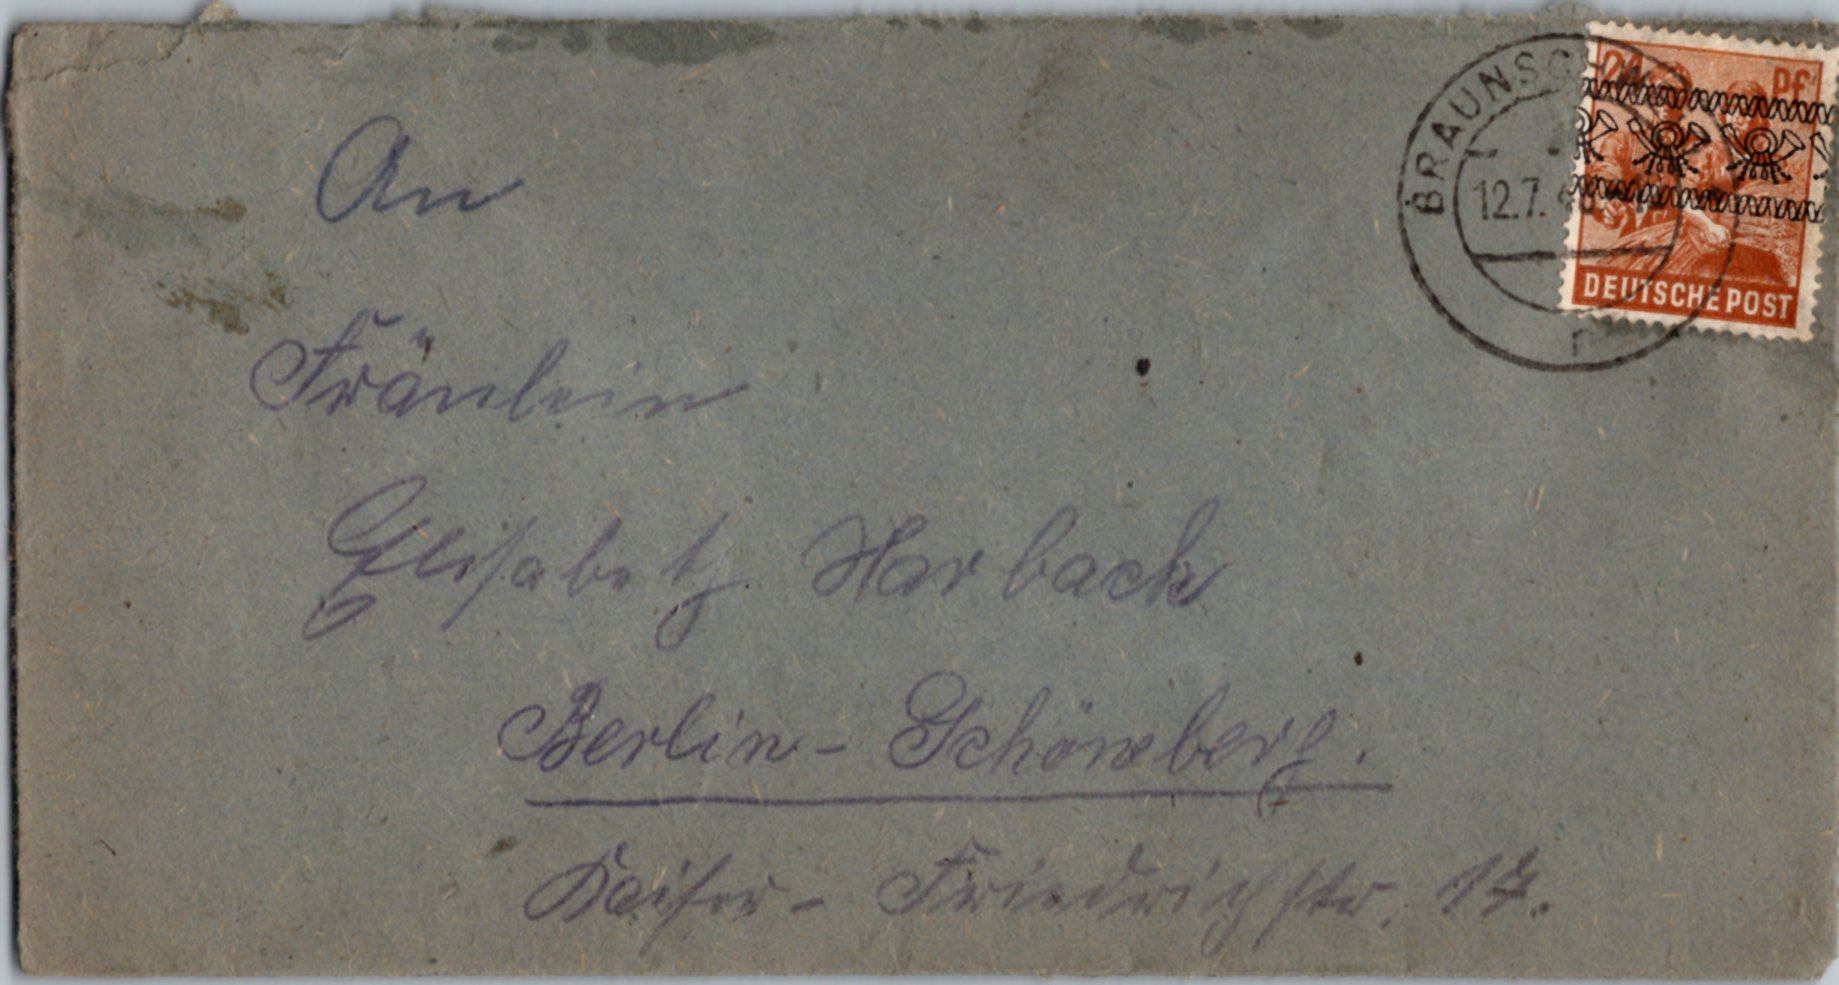 An
Fräulein
Elisabeth Harbach
Berlin-Schöneberg.
Kaiser-Friedrichstr. 17.
BRAUNSCH
12.7.
r
24 Pf
DEUTSCHE POST